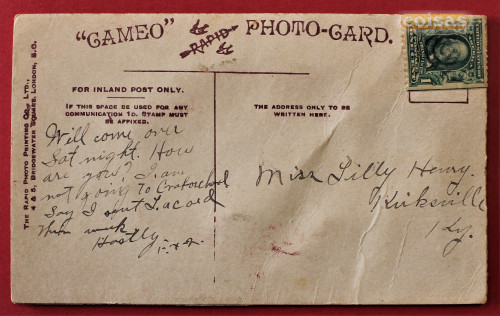 coisas
"CAMEO" RAPID PHOTO-CARD.
THE RAPID PHOTO PRINTING CO., LTD.,
4 & 5, BRIDGEWATER SQUARE, LONDON, E.C.
FOR INLAND POST ONLY.
IF THIS SPACE BE USED FOR ANY
COMMUNICATION 1D. STAMP MUST
BE AFFIXED.
THE ADDRESS ONLY TO BE
WRITTEN HERE.
Will come over
Sat night. How
are you? I am
not going to
Say I sent a card
week
Hastily
Miss Lilly Henry.
Kirksville
Ky.